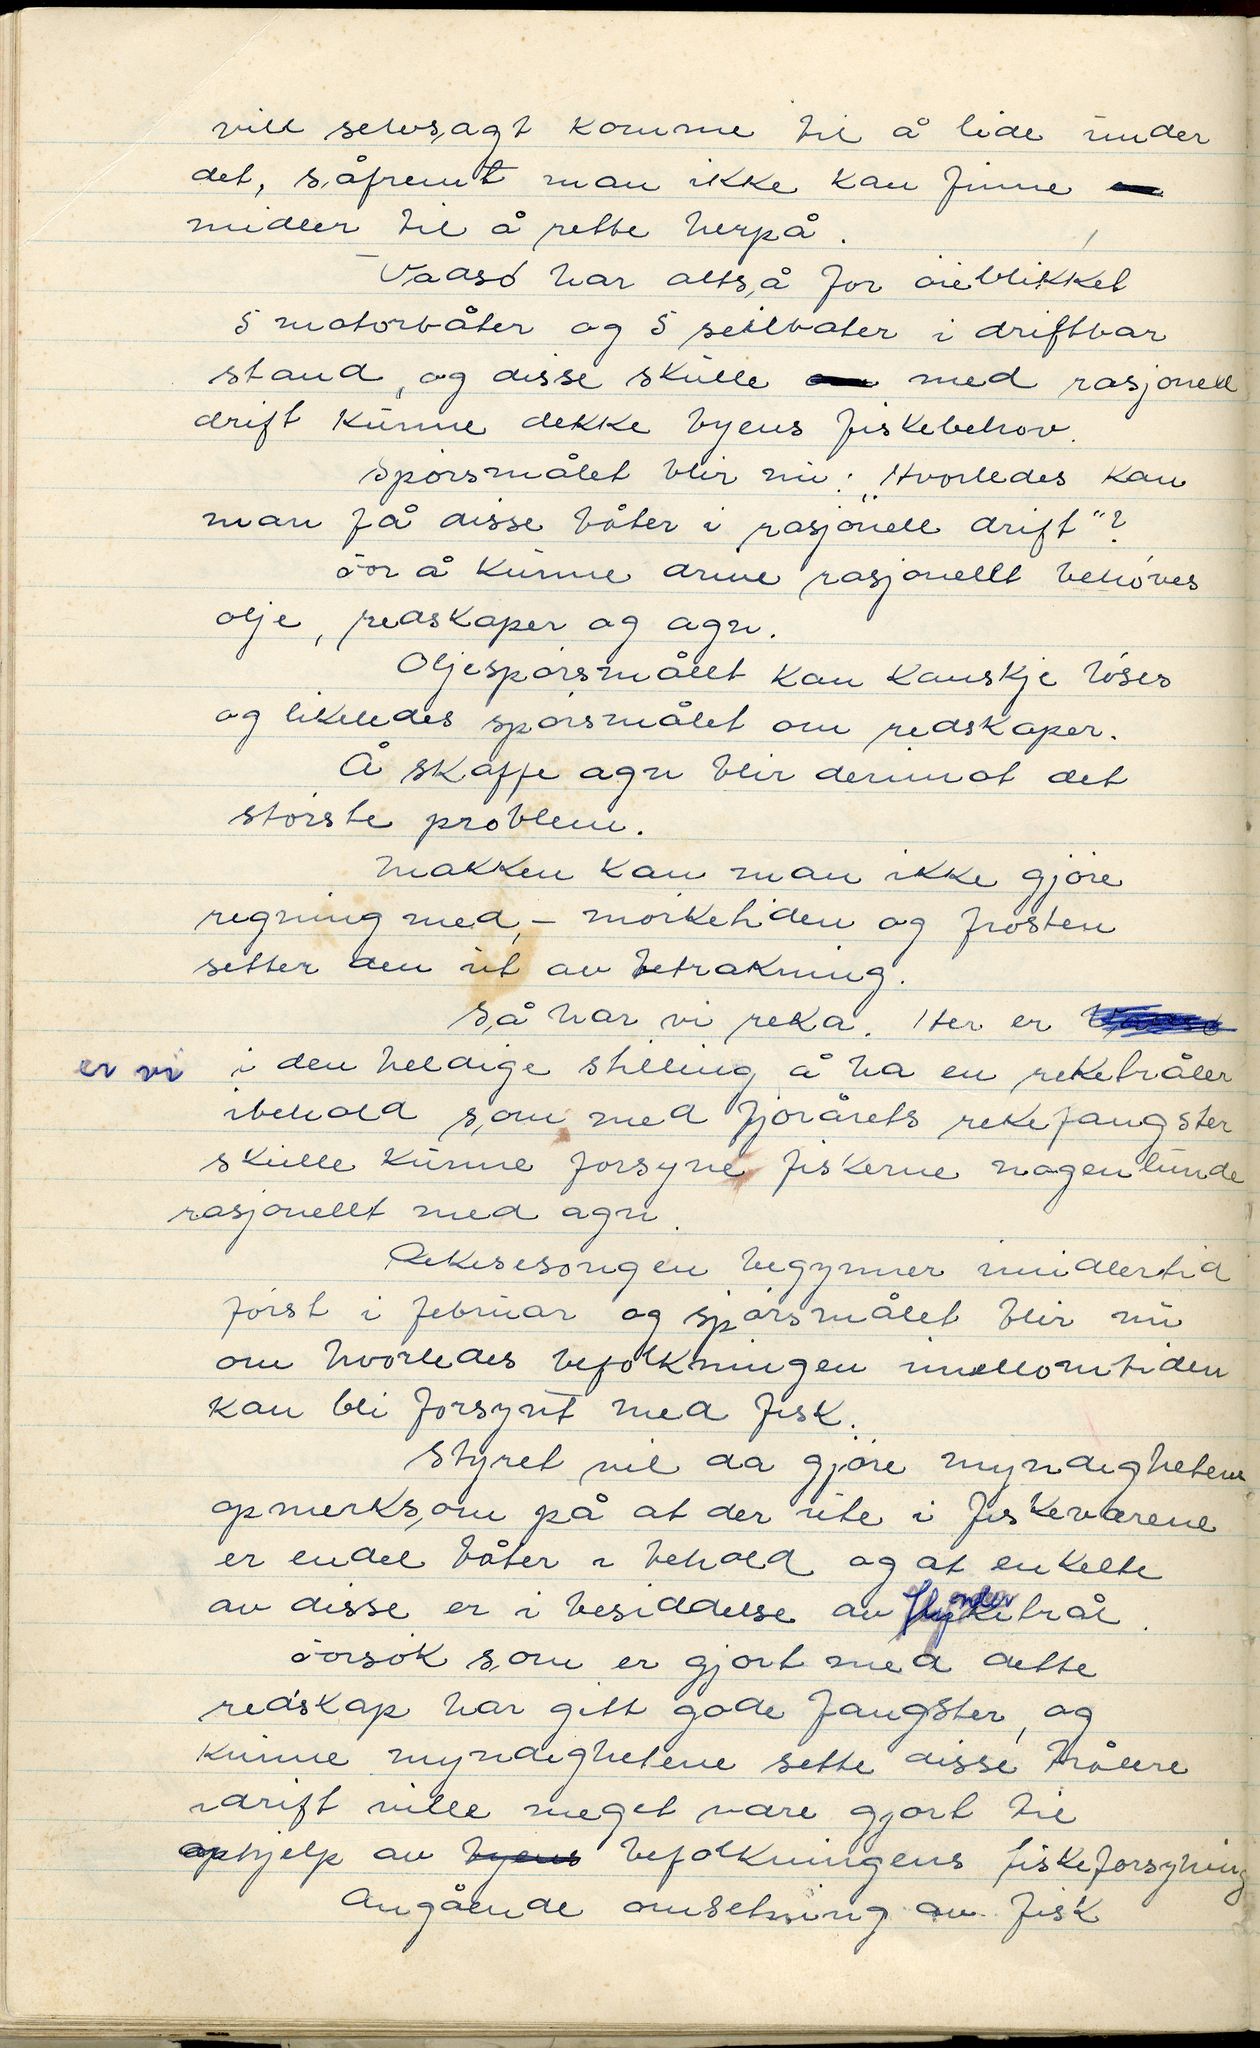 vill selvsagt komme til å lide under
det, såfremt man ikke kan finne
midler til å rette herpå.
Vadsö har altså for öieblikket
5 motorbåter og 5 seilbåter i driftbar
stand, og disse skulle med rasjonell
drift kunne dekke byens fiskebehov.
Spörsmålet blir nu: „Hvorledes kan
man få disse båter i rasjonell drift"?
For å kunne drive rasjonellt behöves
olje, redskaper og agn.
Oljespörsmålet kan kanskje löses
og likeledes spörsmålet om redskaper.
Å skaffe agn blir derimot det
störste problem.
Makken kan man ikke gjöre
regning med, – mörketiden og frosten
setter den ut av betrakning.
Så har vi reka. Her er
er vi i den heldige stilling å ha en reketråler
ibehold som med fjorårets rekefangster
skulle kunne forsyne fiskerne nogenlunde
rasjonellt med agn.
Rekesesongen begynner imidlertid
först i februar og spörsmålet blir nu
om hvorledes befolkningen imellomtiden
kan bli forsynt med fisk.
Styret vil da gjöre myndighetene
opmerksom på at der ute i fiskeværene
er endel båter i behold og at enkelte
av disse er i besiddelse av flyndretrål.
Forsök som er gjort med dette
redskap har gitt gode fangster, og
kunne myndighetene sette disse trålere
idrift ville meget være gjort til
ophjelp av byens befolkningens fiskeforsyning
Angående omsetning av fisk